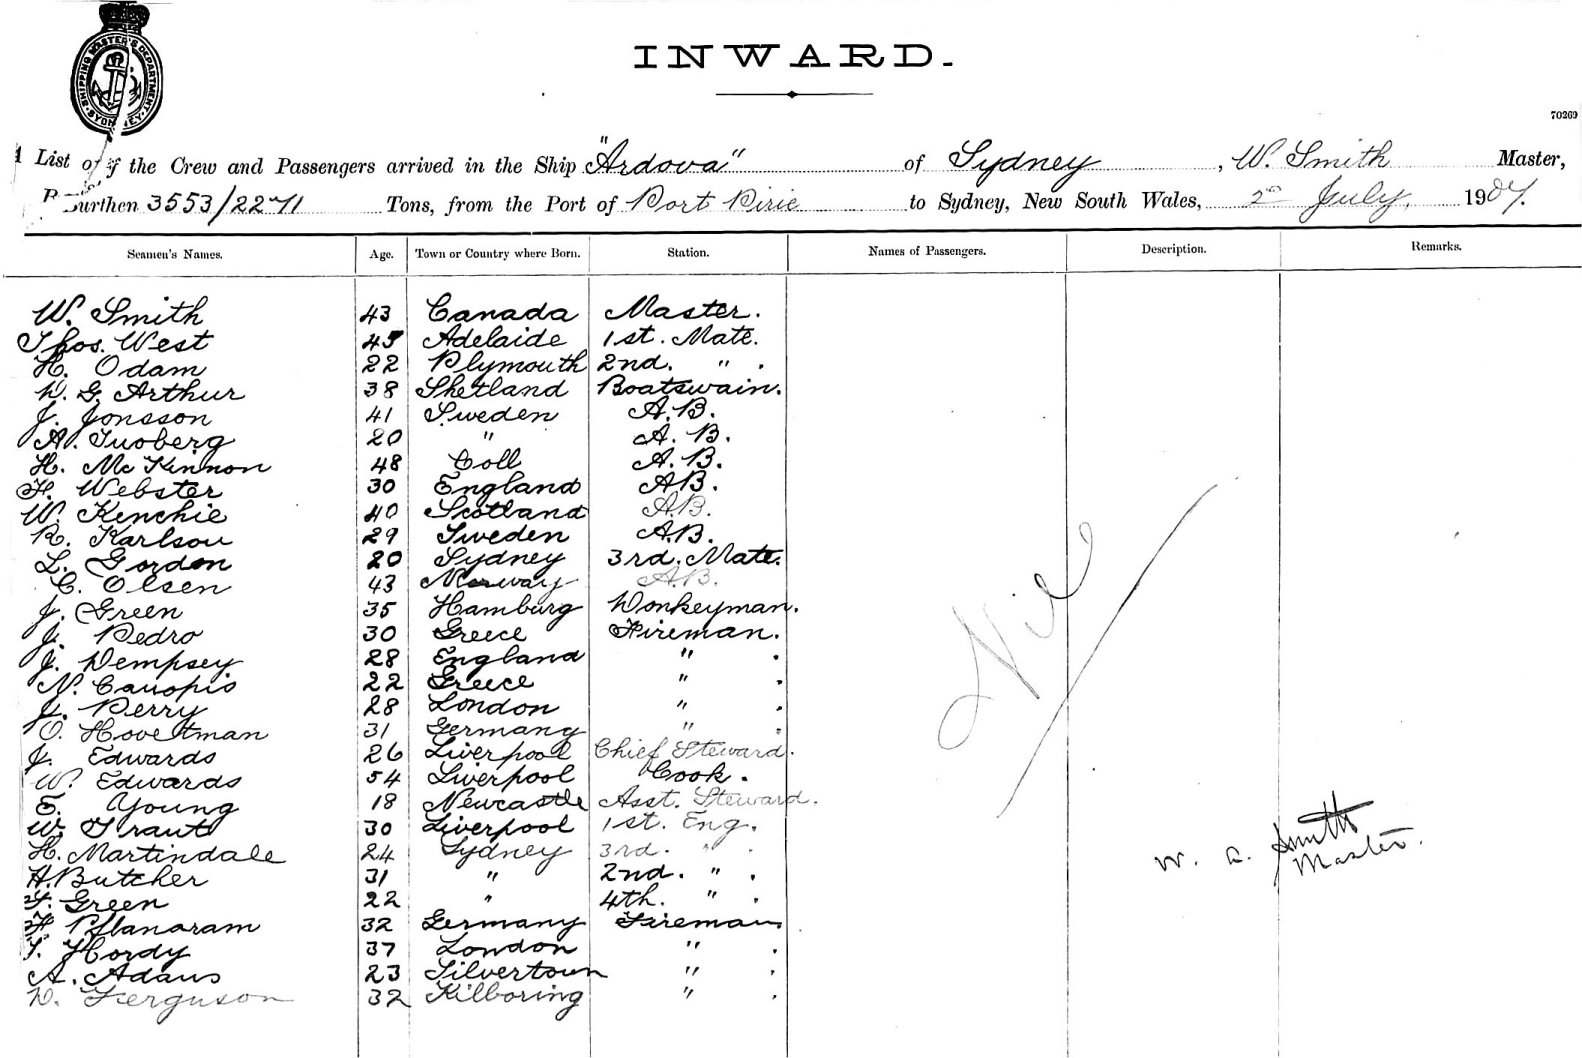 SHIPPING MASTER'S DEPARTMENT
SYDNEY
INWARD.
70269
List of the Crew and Passengers arrived in the Ship "Ardova" of Sydney, W. Smith Master,
Burthen 3553/2271 Tons, from the Port of Port Pirie to Sydney, New South Wales, 2nd July, 1907.
Seamen's Names. Age. Town or Country where Born. Station. Names of Passengers. Description. Remarks.
W. Smith 43 Canada Master.
Thos. West 45 Adelaide 1st. Mate.
H. Odam 22 Plymouth 2nd. " .
W. G. Arthur 38 Shetland Boatswain.
J. Jonsson 41 Sweden A.B.
A. Tuoberg 20 " A. B.
H. McKinnon 48 Coll A. B.
H. Webster 30 England AB.
W. Kenchie 40 Scotland A.B.
R. Karlson 29 Sweden A.B.
L. Gordon 20 Sydney 3rd. Mate.
C. Olsen 43 Norway A.B.
J. Green 35 Hamburg Donkeyman.
J. Pedro 30 Greece Fireman.
J. Dempsey 28 England " .
N. Canopis 22 Greece " .
J. Perry 28 London " .
O. Hoveltman 31 Germany " .
J. Edwards 26 Liverpool Chief Steward.
W. Edwards 54 Liverpool Cook.
E. Young 18 Newcastle Asst. Steward.
W. Grant 30 Liverpool 1st. Eng.
H. Martindale 24 Sydney 3rd. " .
H. Butcher 31 " 2nd. " .
F. Green 22 " 4th. " .
H Pflanaram 32 Germany Fireman
T. Hordy 37 London " .
A. Adams 23 Silvertown " .
D. Ferguson 32 Kilboring " .
Nil
W. A. Smith
Master.